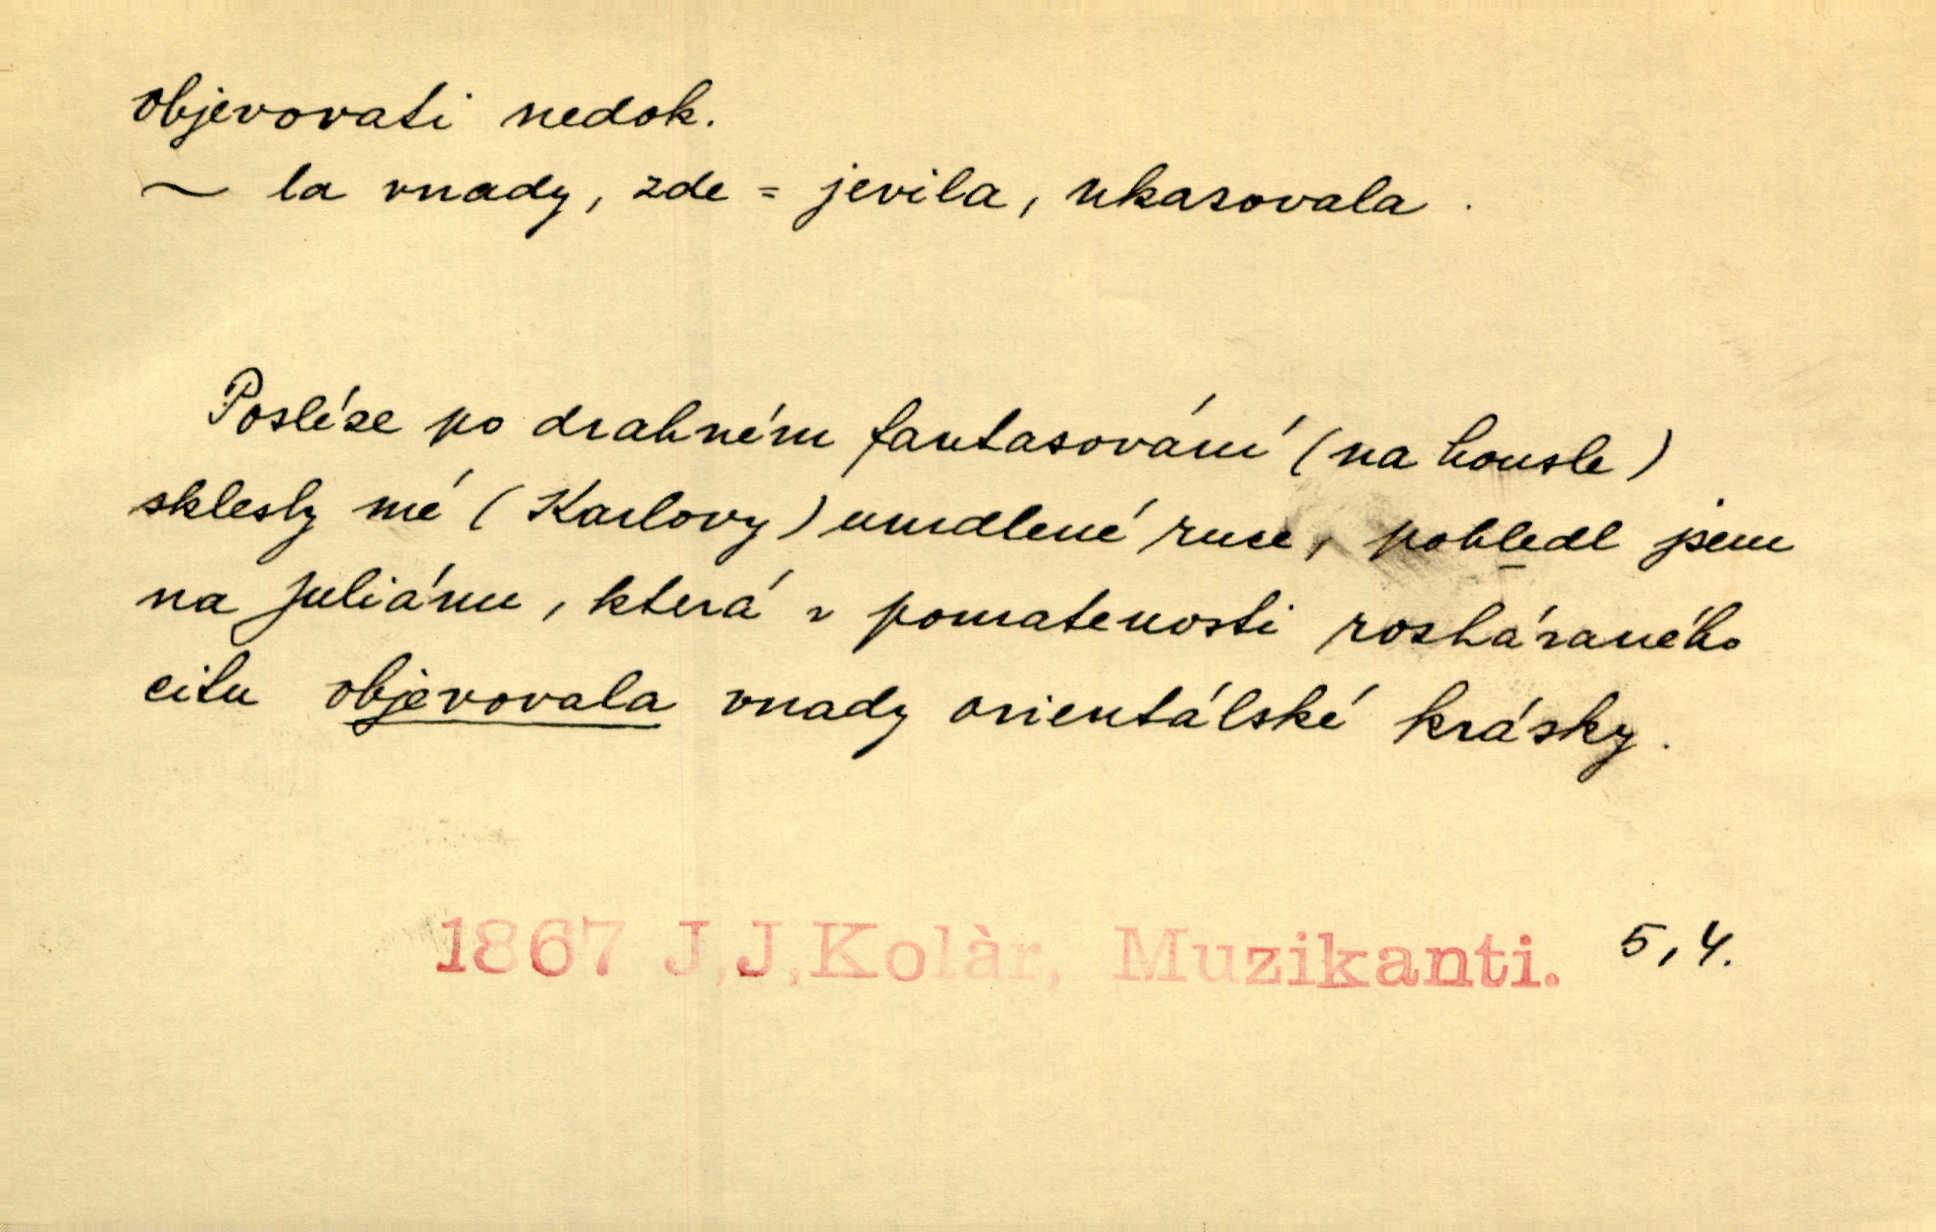 objevovati nedok.
~ la vnady, zde = jevila, ukazovala.
Posléze po drahném fantasování (na housle)
sklesly mé (Karlovy) umdlené ruce, pohledl jsem
na Juliánu, která v pomatenosti rozháraného
citu objevovala vnady orientálské krásky.
1867 J.J.Kolàr, Muzikanti. 5,4.